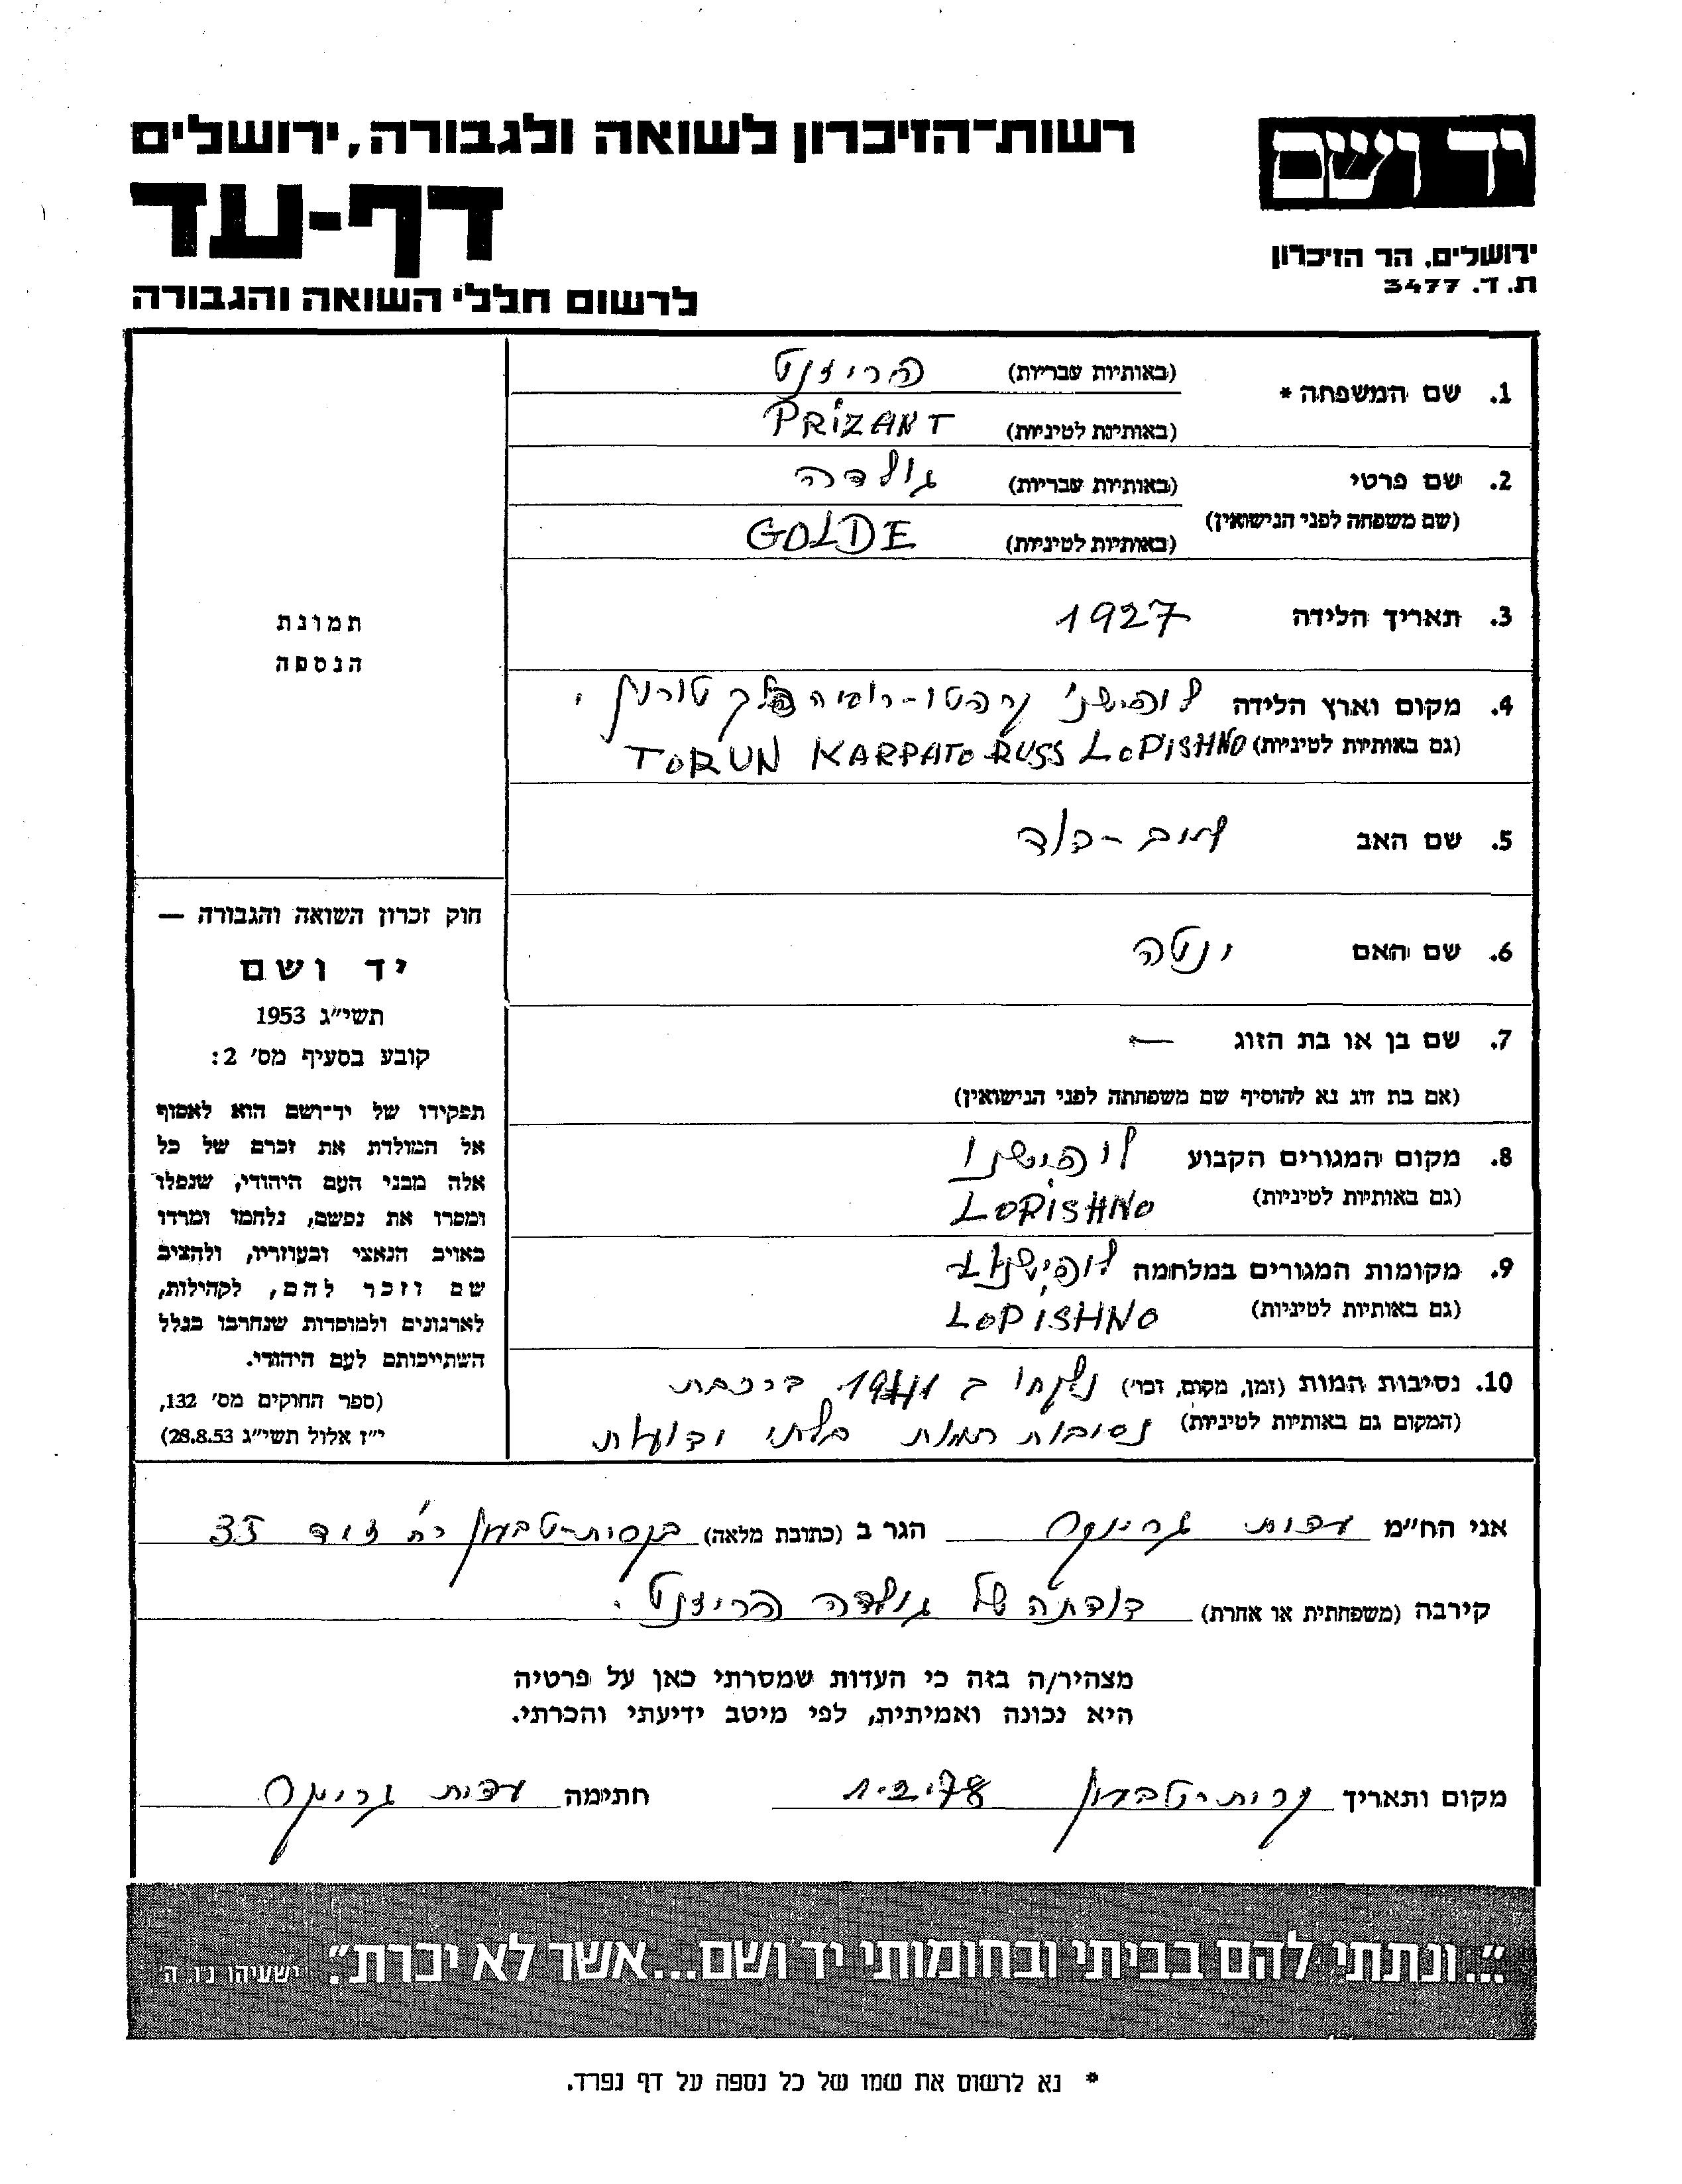 יד ושם
ירושלים, הר הזיכרון
ת.ד. 3477
רשות־הזיכרון לשואה ולגבורה, ירושלים
דף-עד
לרשום חללי השואה והגבורה
1. שם המשפחה * (באותיות עבריות) פריזנט
(באותיות לטיניות) PRIZANT
2. שם פרטי (באותיות עבריות) גולדה
(שם משפחה לפני הנישואין)
(באותיות לטיניות) GOLDE
3. תאריך הלידה 1927
4. מקום וארץ הלידה לופישני קרפטו-רוסיה פלך טורון,
(גם באותיות לטיניות) TORUN KARPATO RUSS LOPISHNO
5. שם האב
6. שם האם ינטה
7. שם בן או בת הזוג —
(אם בת זוג נא להוסיף שם משפחתה לפני הנישואין)
8. מקום המגורים הקבוע לופישנו
(גם באותיות לטיניות) LOPISHNO
9. מקומות המגורים במלחמה
(גם באותיות לטיניות) LOPISHNO
10. נסיבות המות (זמן, מקום, וכו') נלקחו ב ברכבת
(המקום גם באותיות לטיניות) נסיבות המות בלתי ידועות
תמונת
הנספה
חוק זכרון השואה והגבורה —
יד ושם
תשי״ג 1953
קובע בסעיף מס׳ 2:
תפקידו של יד־ושם הוא לאסוף
אל המולדת את זכרם של כל
אלה מבני העם היהודי, שנפלו
ומסרו את נפשם, נלחמו ומרדו
באויב הנאצי ובעוזריו, ולהציב
שם וזכר להם, לקהילות,
לארגונים ולמוסדות שנחרבו בגלל
השתייכותם לעם היהודי.
(ספר החוקים מס׳ 132,
י״ז אלול תשי״ג 28.8.53)
אני הח״מ הגר ב (כתובת מלאה) 35
קירבה (משפחתית או אחרת) דודתה של גולדה פריזנט.
מצהיר/ה בזה כי העדות שמסרתי כאן על פרטיה
היא נכונה ואמיתית, לפי מיטב ידיעתי והכרתי.
מקום ותאריך קרית-טבעון 1.2.78 חתימה
״...ונתתי להם בביתי ובחומותי יד ושם...אשר לא יכרת״. ישעיהו נ״ו, ה׳
* נא לרשום את שמו של כל נספה על דף נפרד.